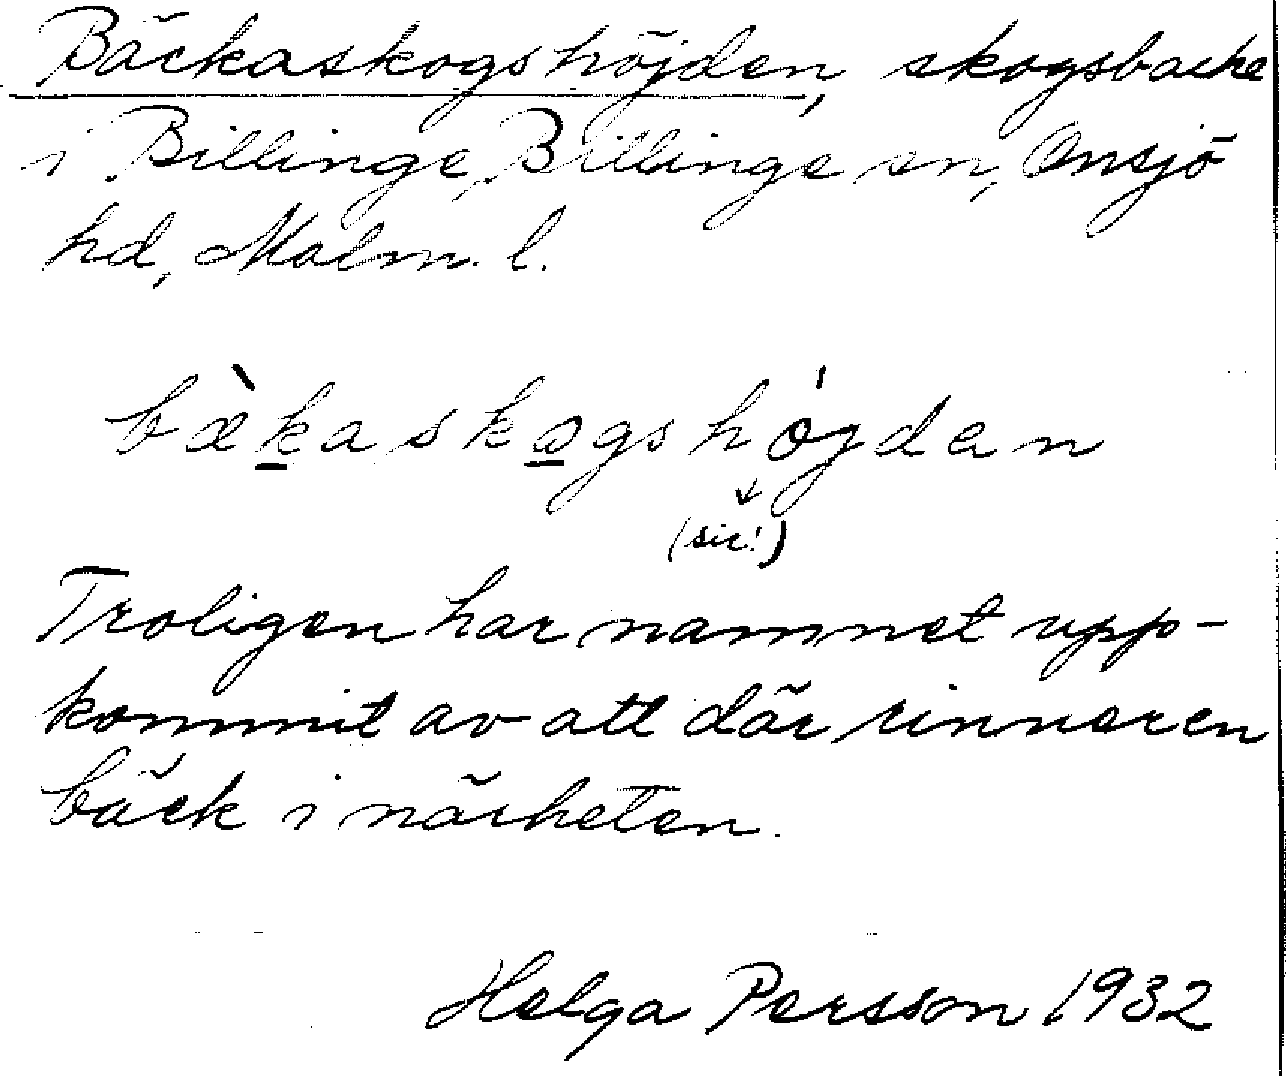 Bäckaskogshöjden, skogsbacke
i Billinge, Billinge sn, Onsjö
hd, Malm. l.
bæ̀kaskogshójden
(sic!)
Troligen har namnet upp-
kommit av att där rinner en
bäck i närheten.
Helga Persson 1932